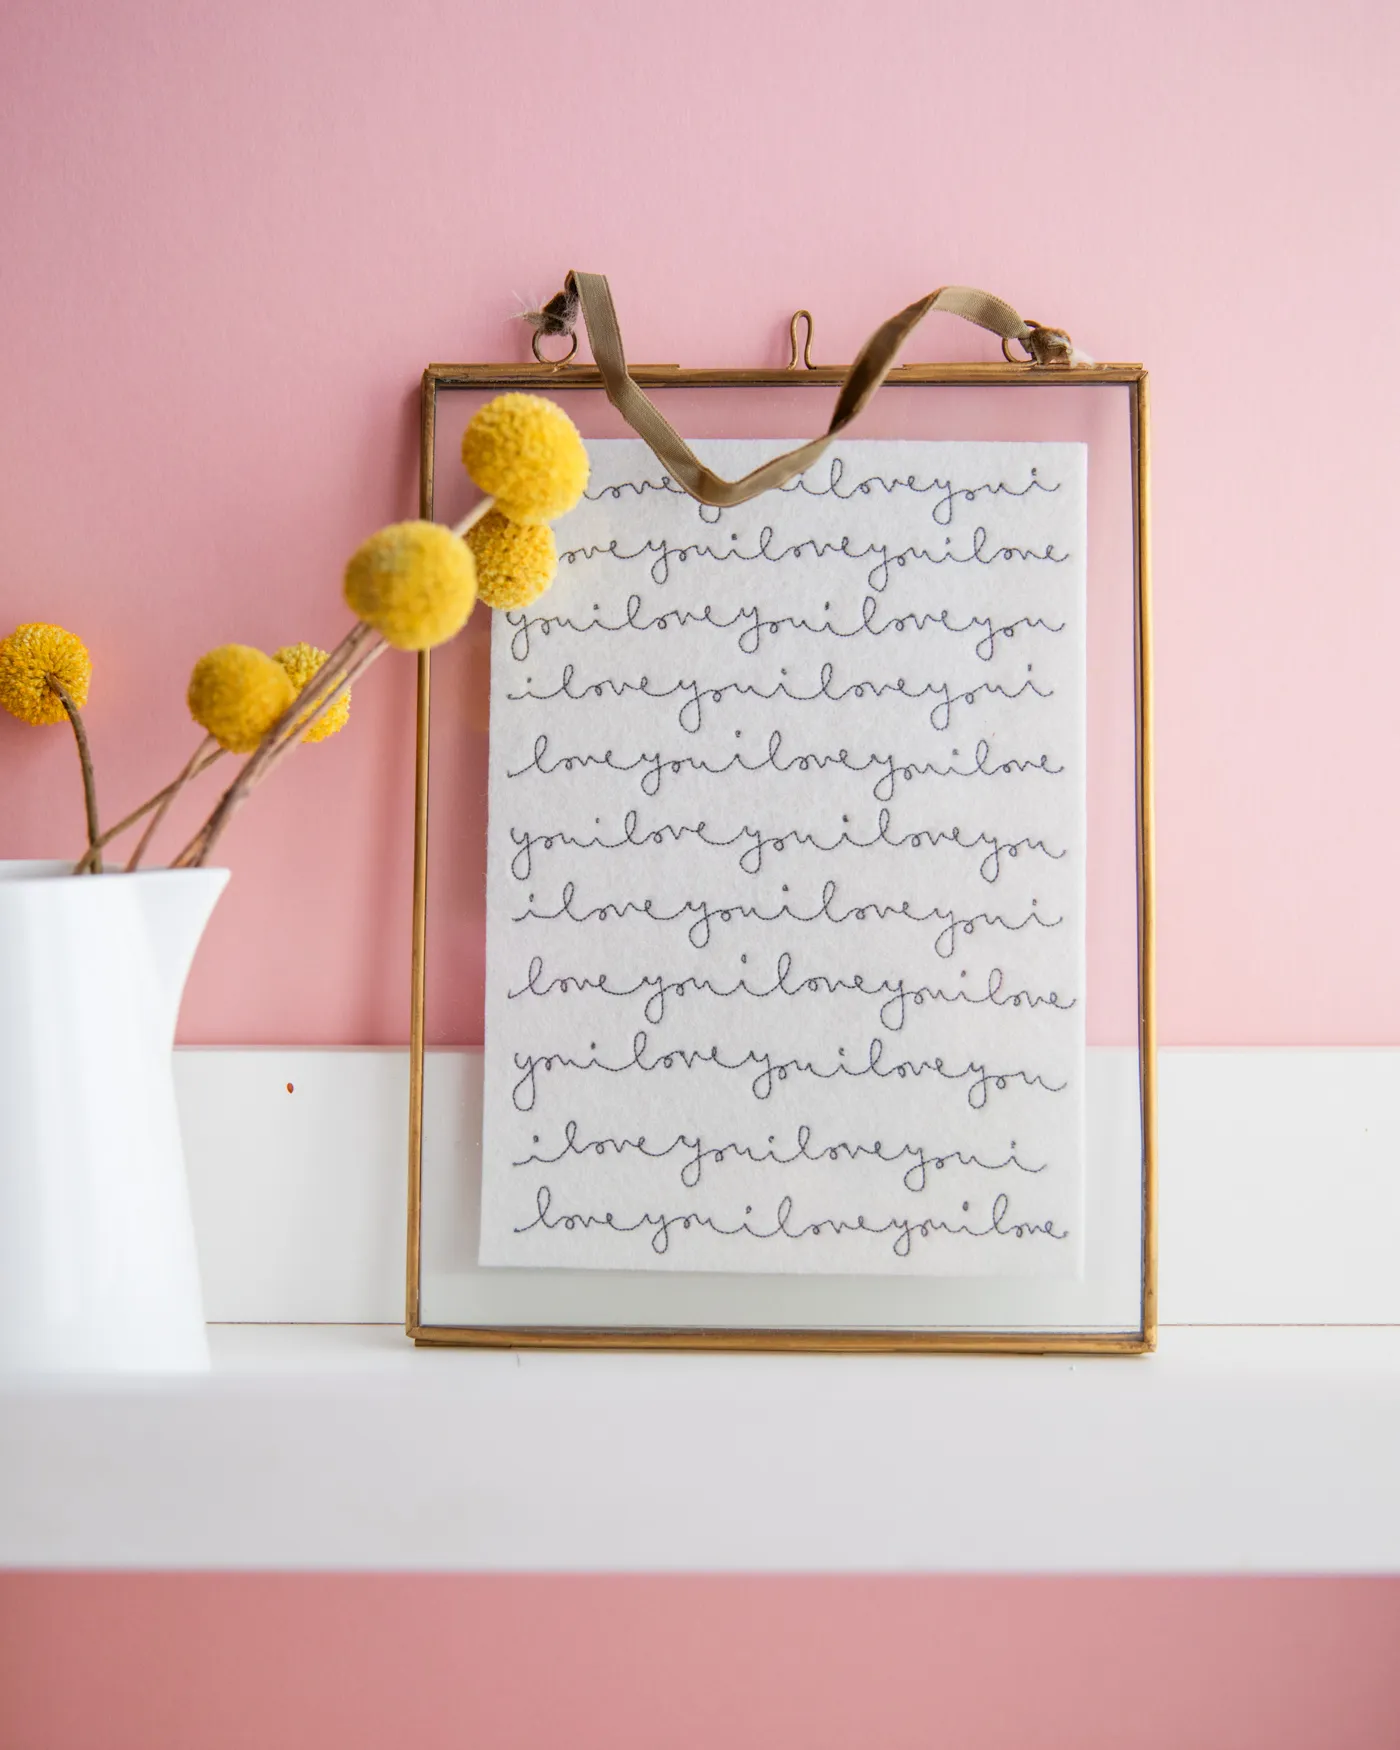 loveyouiloveyoui
loveyouiloveyouilove
youiloveyouiloveyou
iloveyouiloveyoui
loveyouiloveyouilove
youiloveyouiloveyou
iloveyouiloveyoui
loveyouiloveyouilove
youiloveyouiloveyou
iloveyouiloveyoui
loveyouiloveyouilove